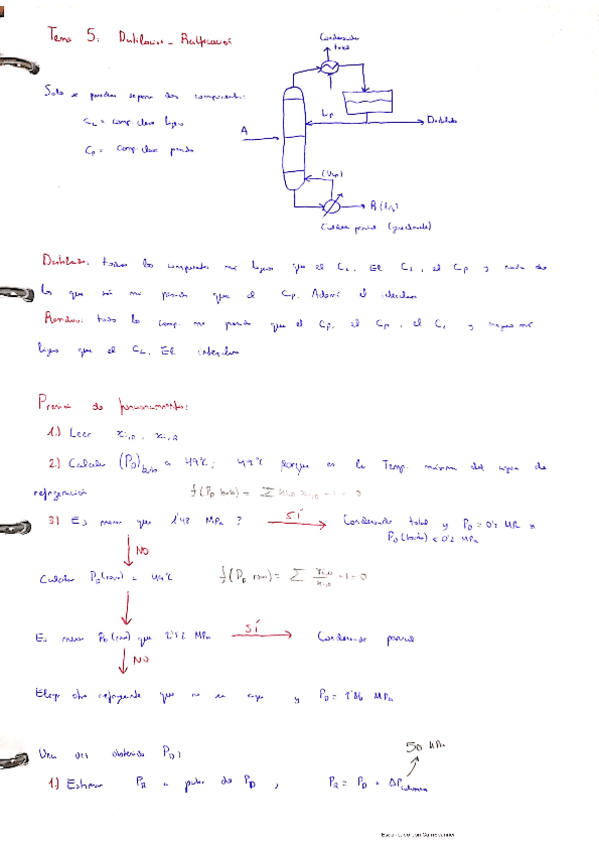 Tema 5: Destilación - Rectificación
Condensador
total
Solo se pueden separar dos componentes:
CL = comp. clave ligero
CP = comp. clave pesado
A
LD
Destilado
(Vap)
R (Liq)
Caldera parcial
Destilado: todos los componentes más ligeros que el CL. El CL, el CP y nada de
los que son más pesados que el CP. Además el intermedio
Residuo: todos los comp. más pesados que el CP, el CP, el CL y
ligeros que el CL. El intermedio
Presión de funcionamiento:
1.) Leer xi,D, xi,R
2.) Calcular (PD)burb a 49ºC; 49ºC porque es la Temp. máxima del agua de
refrigeración f(PD burb) = Σ ki,D xi,D - 1 = 0
3.) Es menor que 1'48 MPa? SÍ Condensador total y PD = 0'2 MPa si
PD(burb) < 0'2 MPa
NO
Calcular PD(rocío) a 49ºC f(PD rocío) = Σ xi,D/ki,D - 1 = 0
Es menor PD(rocío) que 2'52 MPa SÍ Condensador parcial
NO
Elegir otro refrigerante que no sea agua y PD = 2'86 MPa
Una vez obtenida PD:
50 kPa
1.) Estimar PR a partir de PD, PR = PD + ΔPcolumna
Escaneado con CamScanner